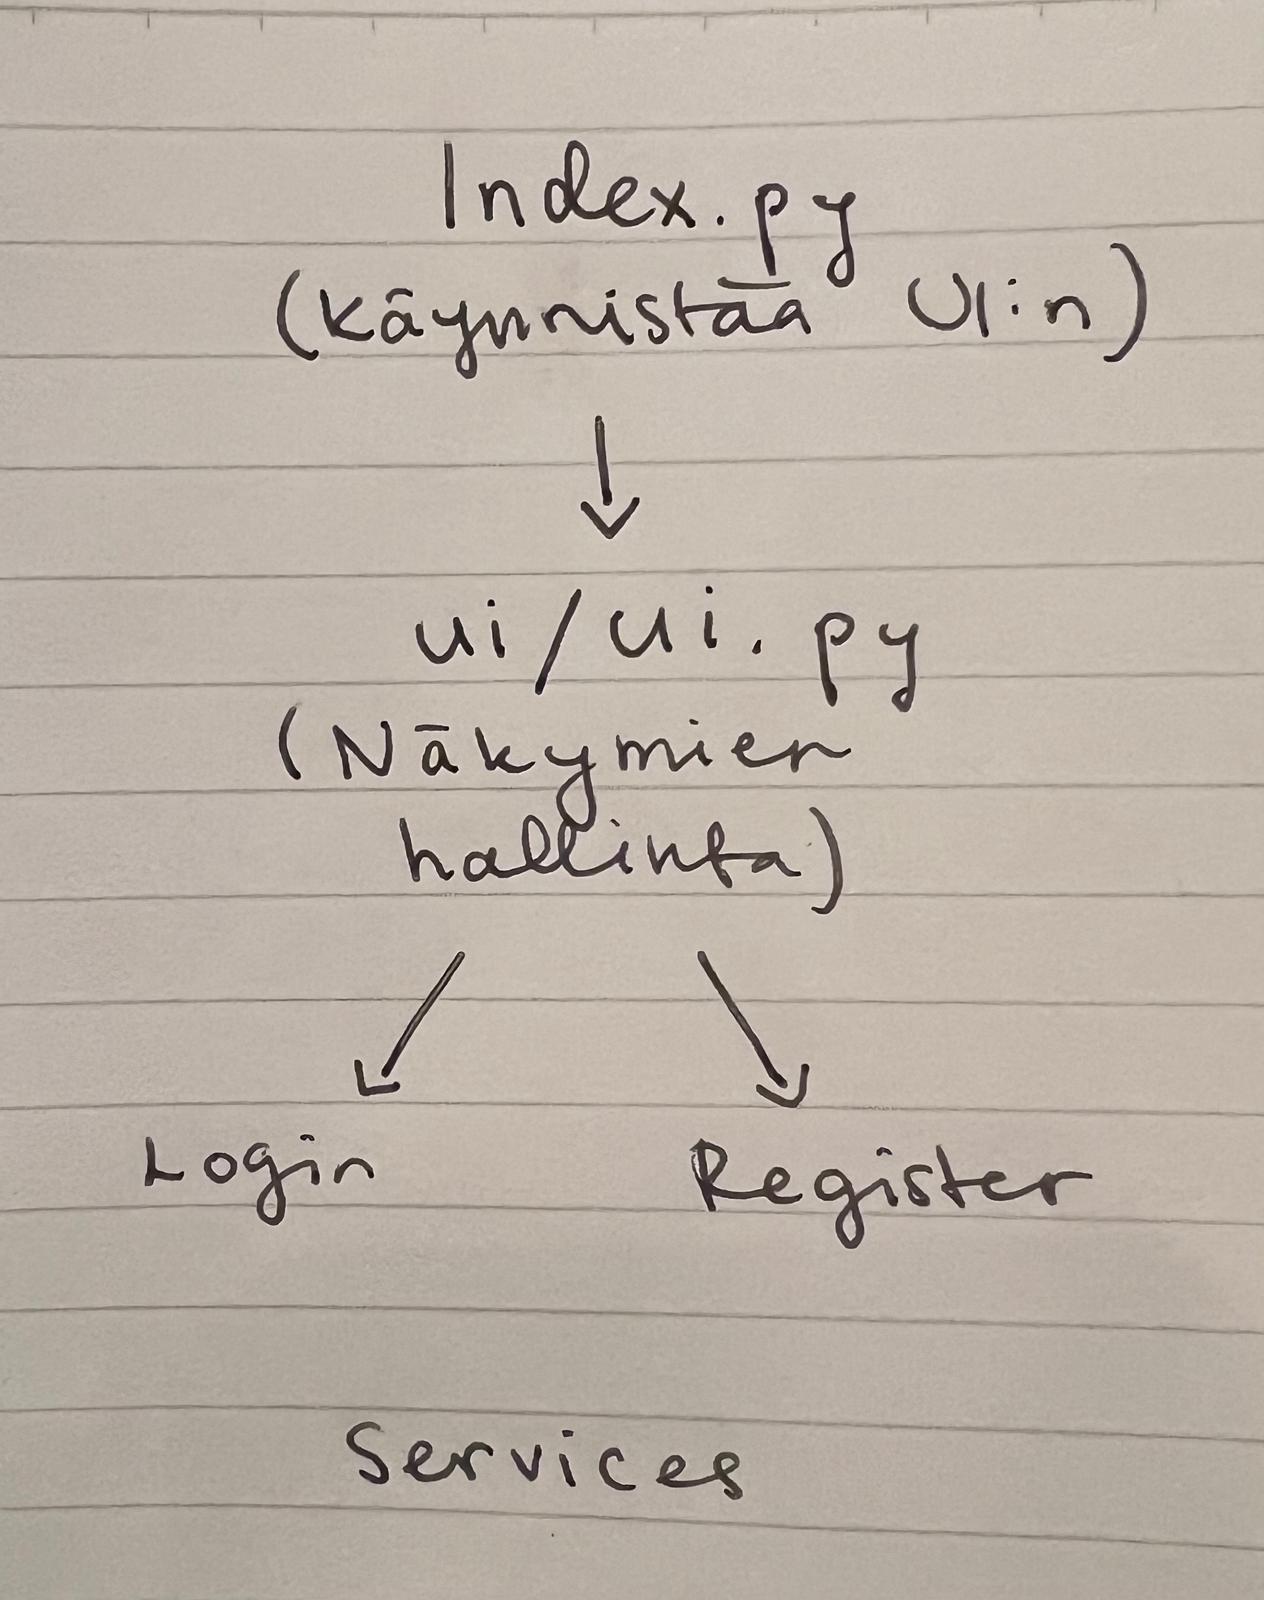 Index.py
(Käynnistää UI:n)
ui/ui.py
(Näkymien
hallinta)
Login
Register
Services